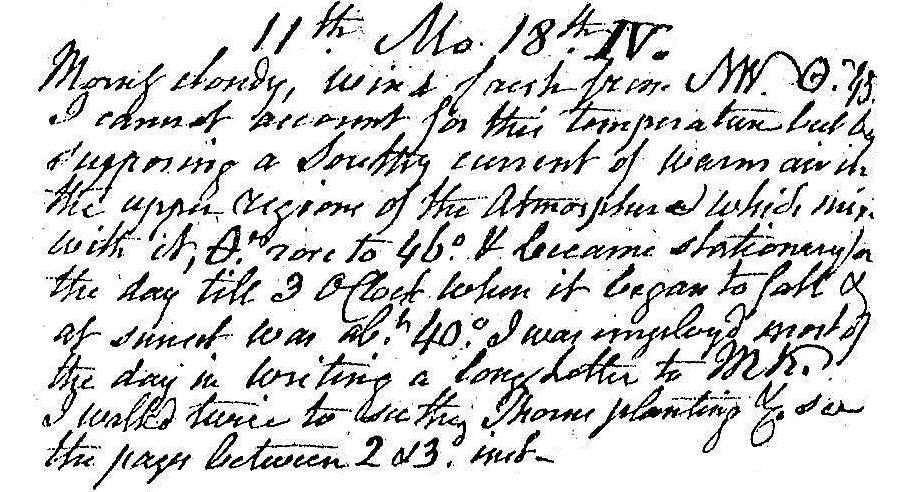 11th Mo. 18th IV.
Morng cloudy, wind fresh from NW. 45.
I cannot account for this temperature but by
supposing a Southy current of warm air in
the upper regions of the Atmosphere which mix
with it, rose to 46° & became stationery for
the day till 3 OClock when it began to fall &
at sunset was abt 40° I was employd most of
the day in writing a long Letter to
I walkd twice to see the Thorns planting see
the pages between 2 & 3d inst-